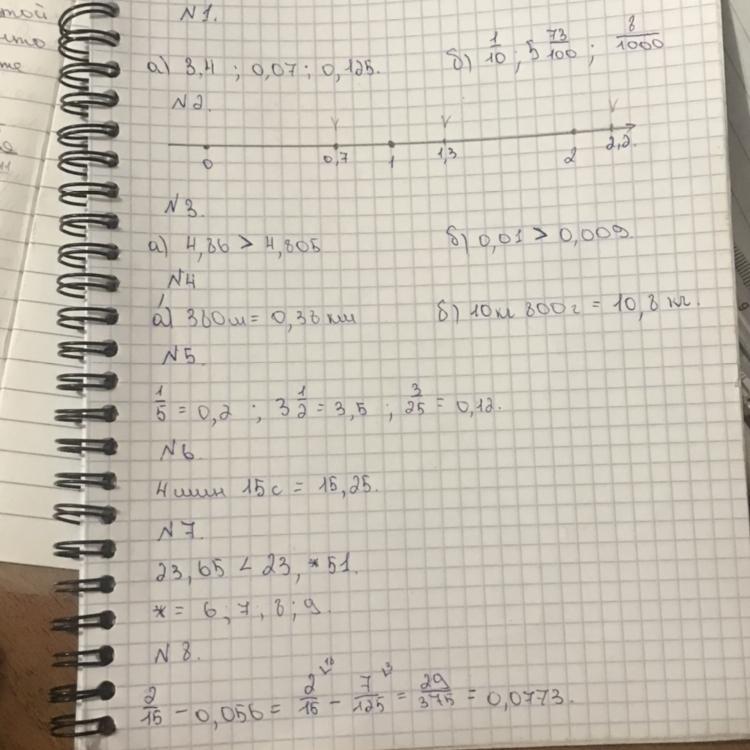 N1.
а) 3,4 ; 0,07 ; 0,125. б) 1/10 ; 5 73/100 ; 8/1000
N2.
0 0,7 1 1,3 2 2,2.
N3.
а) 4,86 > 4,805 б) 0,01 > 0,009.
N4
а) 380м = 0,38 км б) 10кг 800г = 10,8 кг.
N5.
1/5 = 0,2 ; 3 1/2 = 3,5 ; 3/25 = 0,12.
N6
4 мин 15с = 15,25.
N7.
23,65 < 23,*51.
* = 6 ; 7 ; 8 ; 9.
N8.
2/15 - 0,056 = 2/15 - 7/125 = 29/375 = 0,0773.